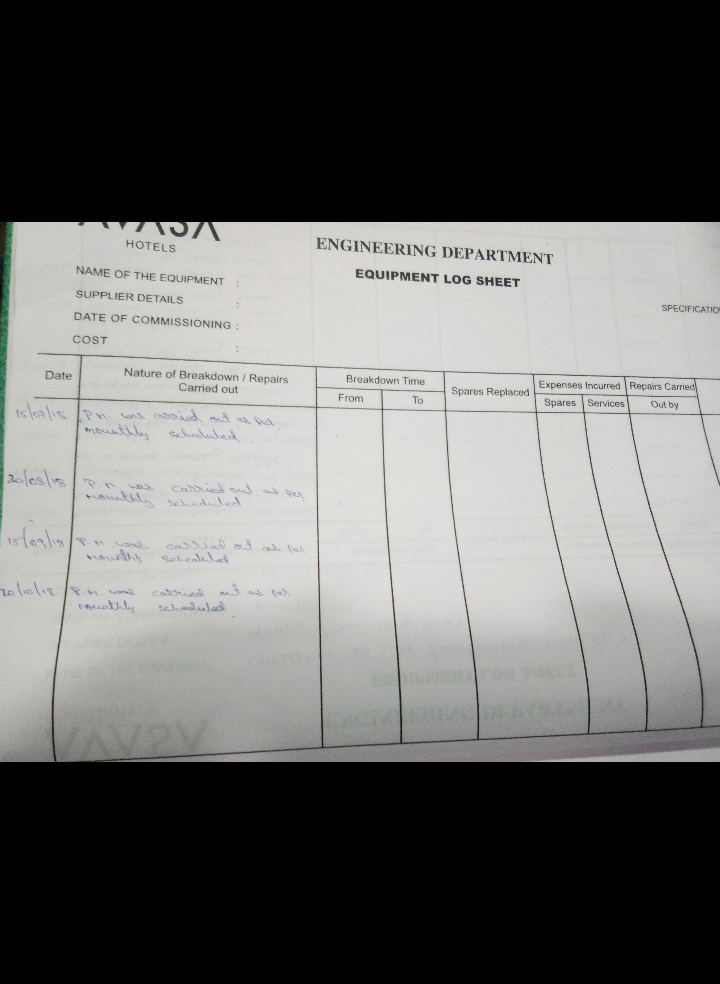 AVASA
HOTELS
ENGINEERING DEPARTMENT
EQUIPMENT LOG SHEET
NAME OF THE EQUIPMENT :
SUPPLIER DETAILS :
DATE OF COMMISSIONING :
COST :
SPECIFICATIO
Date
Nature of Breakdown / Repairs
Carried out
Breakdown Time
From To
Spares Replaced
Expenses Incurred
Spares Services
Repairs Carried
Out by
P.M. was carried out as per
monthly scheduled.
20/08/18 P.M. was carried out as per
monthly scheduled
15/09/18 P.M. was carried out as per
scheduled
20/10/18 P.M. was carried out as per
monthly scheduled